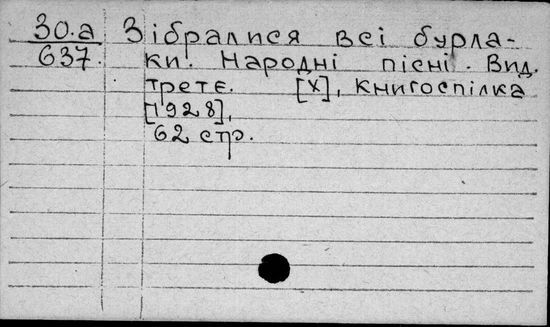 30.а Зібралися всі бурла-
637. ки. Народні пісні. Вид.
третє. [Х], Книгоспілка
[1928],
62 стр.